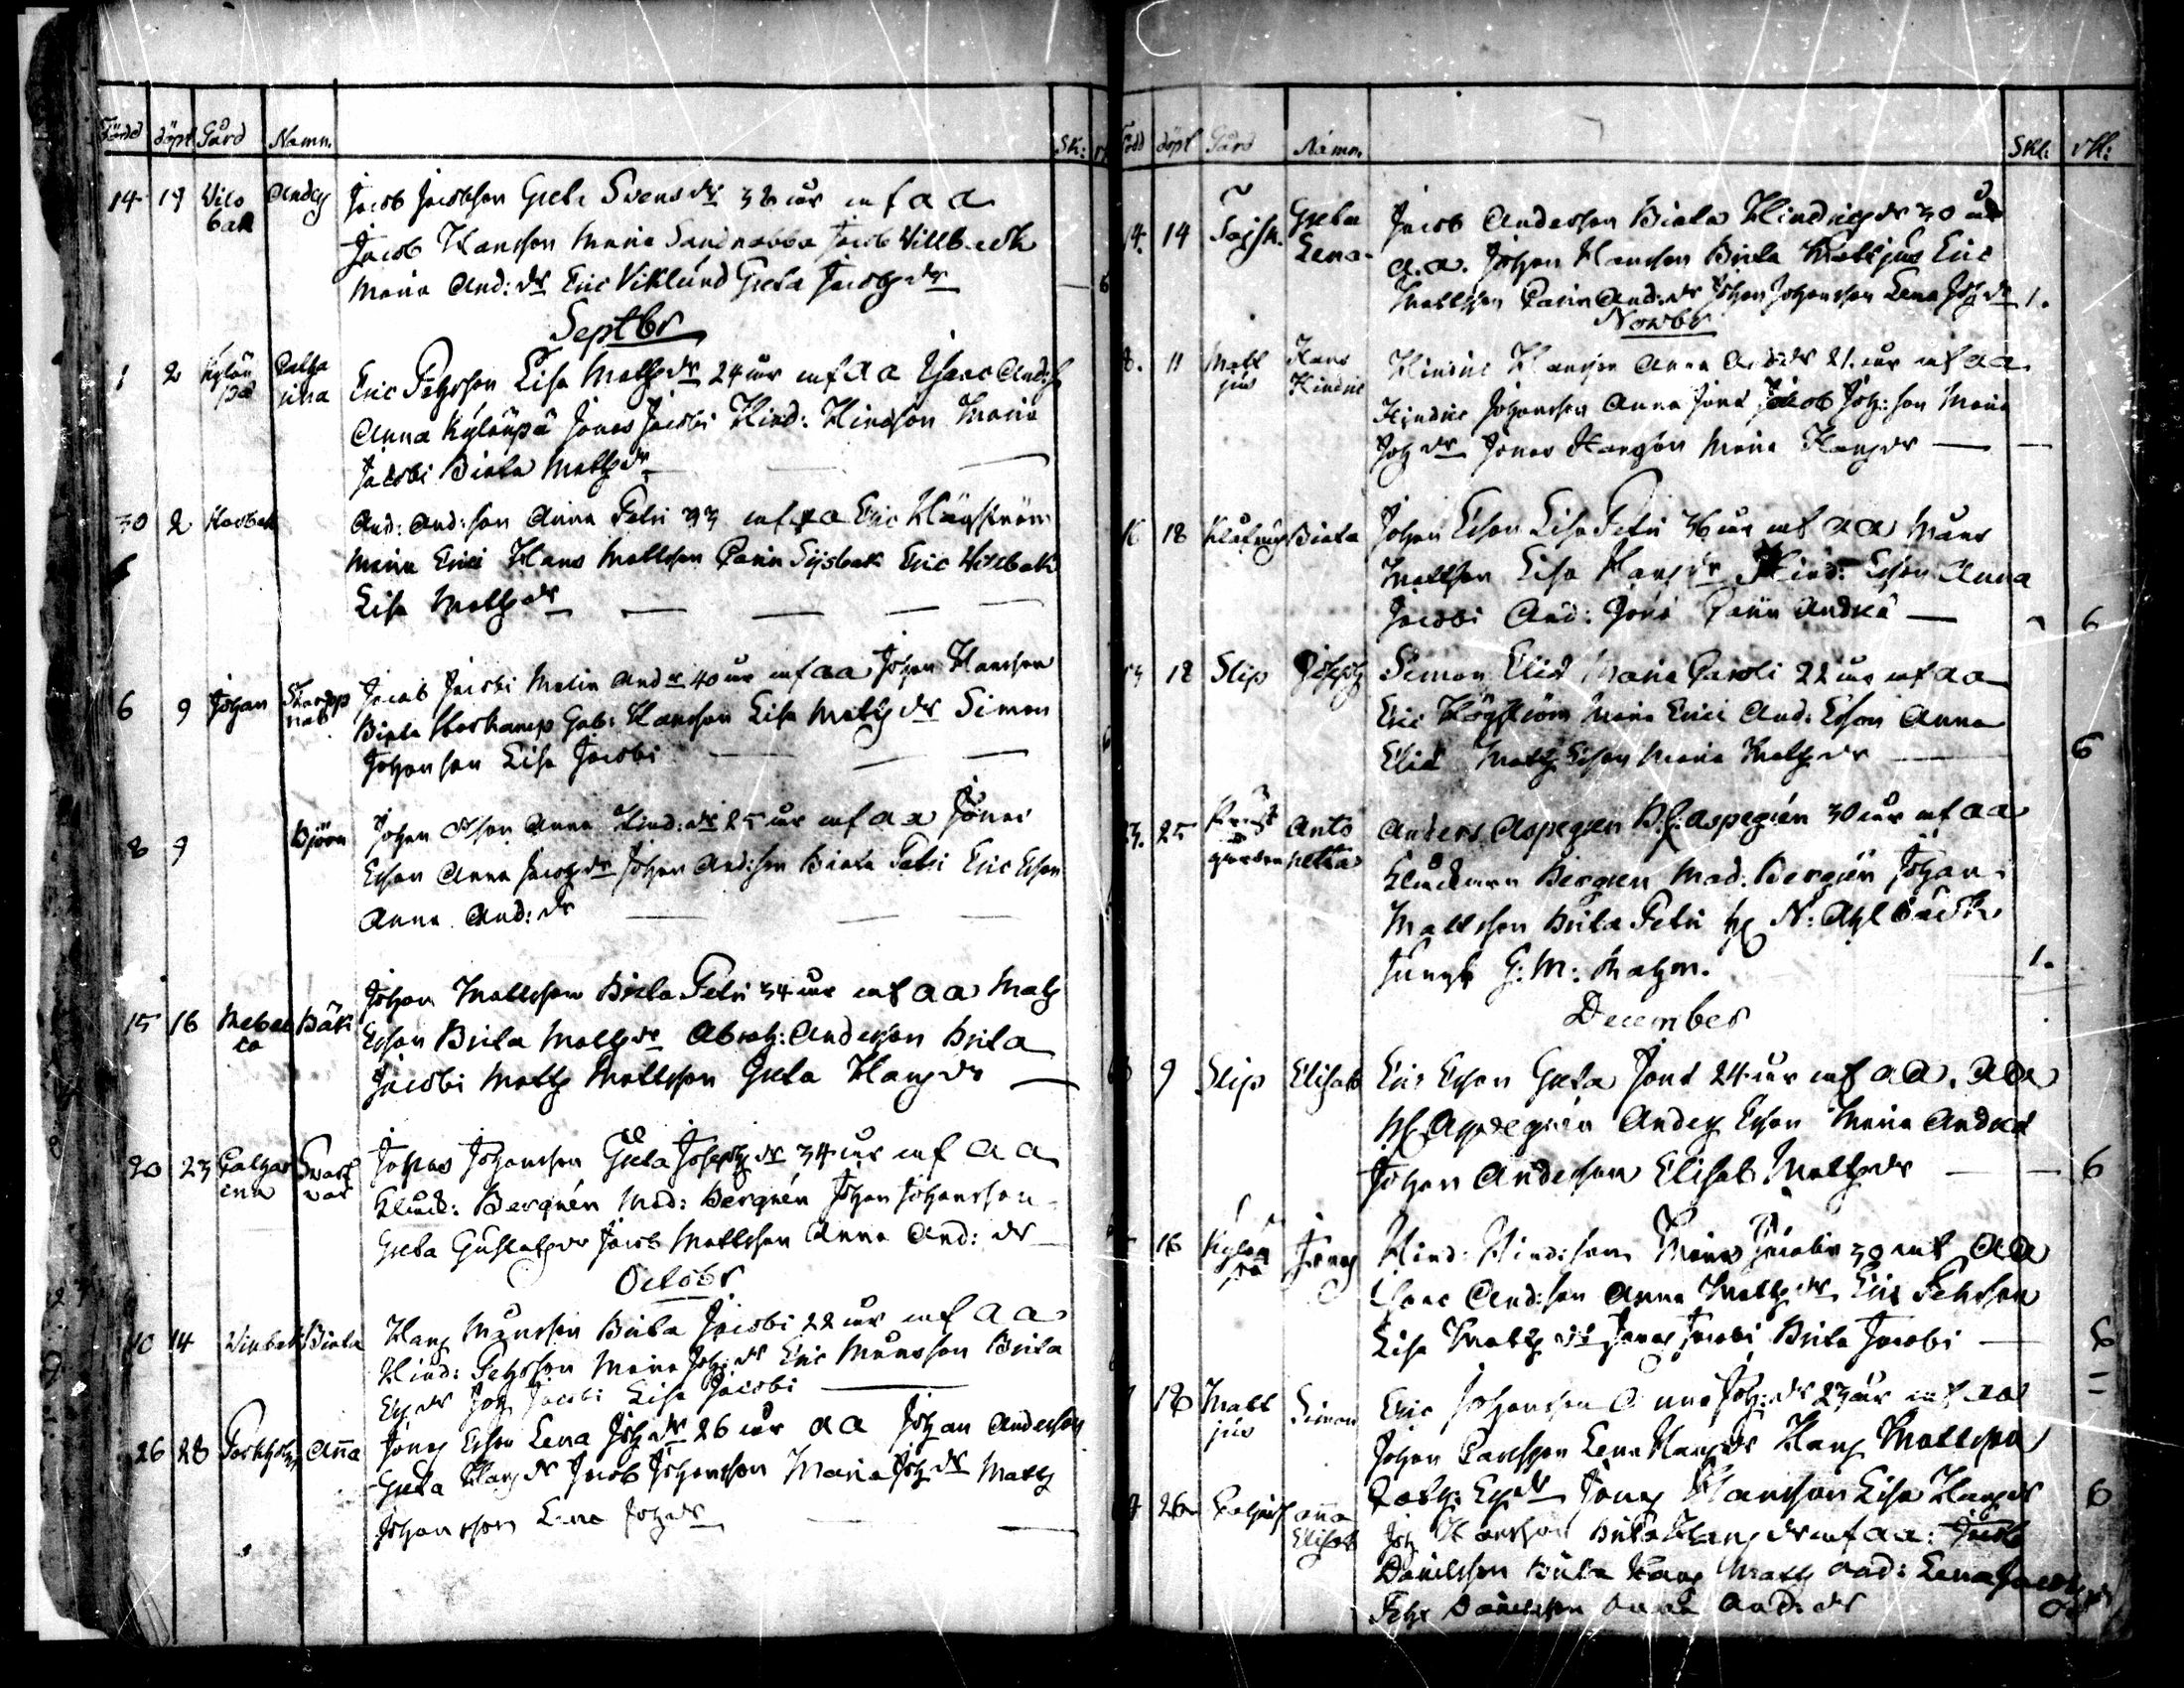 Född döpt Gård Namn. Sk:
14 19 Wilo bak Anders Jacob Jacobsson Greta Svensdr 38 år m f a a
Jacob Hansson Maria Sandnabba Jacob Villback
Maria And: dr Eric Viklund Greta Jacobsdr 6
Septbr
1 2 Kylön pä Catha rina Eric Pehrsson Lisa Matsdr 24 år m f a a Isaac And:s
Anna Kylönpä Jonas Jacobi Hind: Hindsson Maria
Jacobi Birta Matsdr
30 2 Horbak And: And:son Anna Petri 33 m f a a Eric Högström
Maria Erici Hans Mattsson Carin Sissbak Eric Wissbak
Lisa Matsdr
6 9 Johan Skarpp nab Jacob Jacobi Malin And dr 40 år m f a a Johan Hansson
Birta Storkamp Gab: Hansson Lisa Matsdr Simon
Johansson Lisa Jacobi
8 9 Björn Johan Ersson Anna Hind: dr 25 år m f a a Jonas
Ersson Anna Jacobsdr Johan And:son Birta Petri Eric Ersson
Anna And: dr
15 16 Rebec ca Bäk Johan Mattsson Birta Petri 34 år m f a a Mats
Ersson Birta Matsdr Abrah: Andersson Brita
Jacobi Matts Mattsson Greta Hansdr
20 23 Cathar ina Svart var Johan Johansson Greta Josephsdr 34 år m f a a
Kluck: Bergren Mad: Bergren Johan Johansson
Greta Gustafsdr Jacob Mattsson Anna And: dr
Octobr
10 14 Wiisbak Birta Hans Månsson Birta Jacobi 22 år m f a a
Hind: Pehrsson Maria Joh: dr Eric Månsson Brita
Ersdr Joh Jacobi Lisa Jacobi
26 28 Forsholm Anna Jonas Ersson Lena Joh dr 26 år a a Johan Andersson
Greta Hansdr Jacob Johansson Maria Joh dr Matts
Johansson Lena Joh dr
Född döpt Gård Namn. Skl: rst:
14. 14 Greta Lena Jacob Andersson Birta Hindricsdr 30 år
a. a. Johan Hansson Birta Mattjus Eric
Mattsson Carin And: dr Johan Johansson Lena Joh dr 1.
Novbr
8. 11 Matt jus Hans Hindric Hindric Hansson Anna And: dr 21. år m f a a
Hindric Johansson Anna Jone Jacob Joh:son Maria
Joh dr Jonas Hansson Maria Hansdr
16 18 Birta Johan Ersson Lisa Petri 36 år m f a a Måns
Mattsson Lisa Hansdr Hind: Ersson Anna
Jacobi And: Jone Carin Andrea 6
18 Slip Joseph Simon Eliæ Maria Caroli 22 år m f a a
Eric Högström Maria Erici And: Ersson Anna
Eliæ Mats Ersson Maria Matsdr 6
23. 25 Prest garden Anto netta Anders Aspegren B. C. Aspegrén 30 år m f a a
Kluckaren Bergren Mad: Bergren Johan
Mattsson Birta Petri H N: Ahlbäck
Jungf G: M: Mahm. 1.
December
9 Slip Elisab Eric Ersson Greta Jone 24 år m f a a.
H Aspegrén Anders Ersson Maria Andreæ
Johan Andersson Elisab Matsdr 6
16 Kylön pä Jonas Hind: Hind:son Maria Jacobi 30 m f a a
Isaac And:son Anna Matsdr Eric Pehrsson
Lisa Mats dr Jonas Jacobi Brita Jacobi 6
16 Matt jus Simon Eric Johansson Anna Joh: dr 23 år m f a a
Johan Carlsson Lena Hansdr Hans Mattsson
Cath: Ersdr Jonas Hansson Lisa Hansdr 6
26 Anna Elisab Joh Hansson Birta Hansdr m f a a: Jacob
Danielsson Birta Hans Matts And: Lena Jacobs dr
Pehr Danielsson And: dr